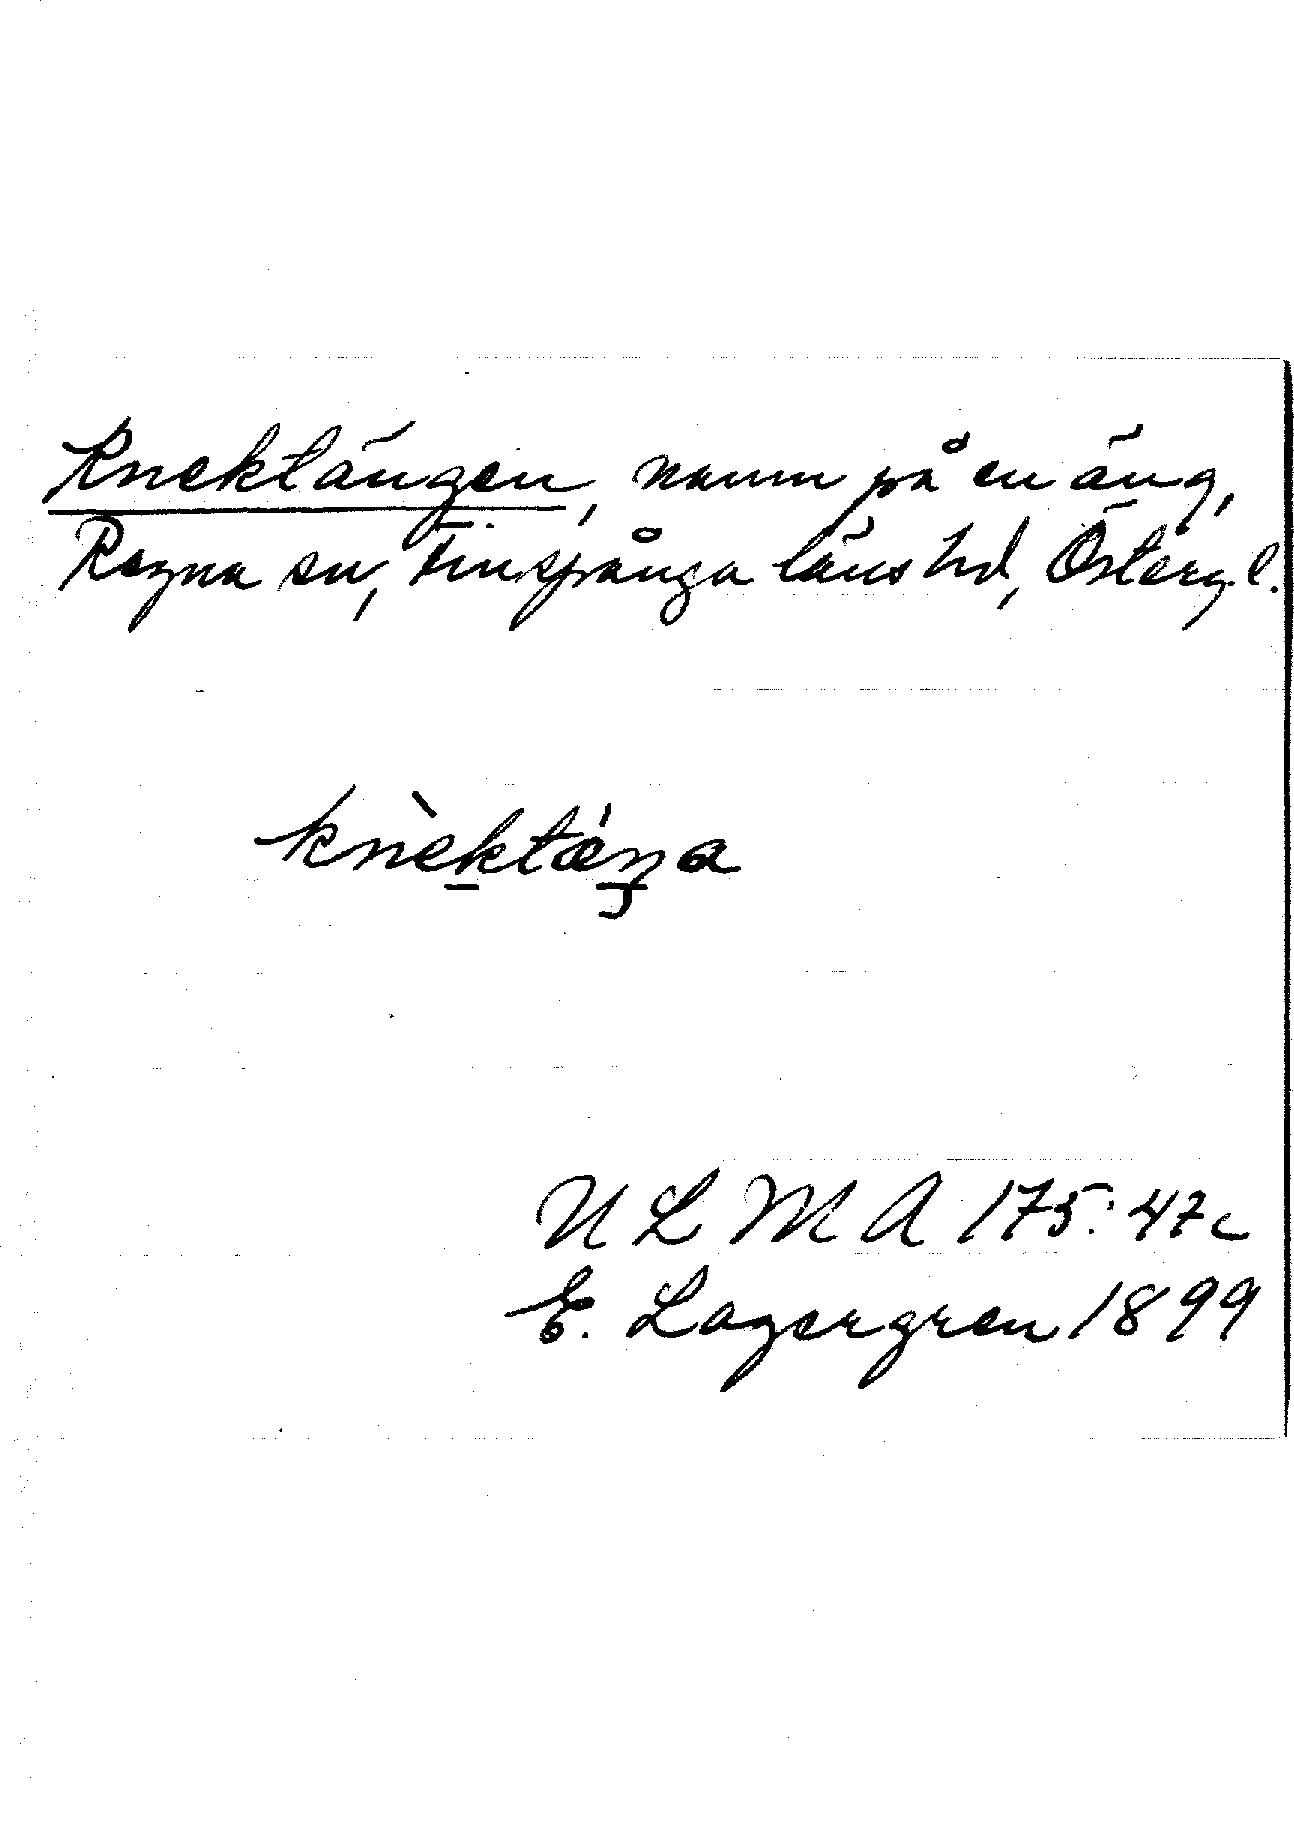 Knektängen, namn på en äng,
Regna sn, Finspånga läns hd, Österg.l.
knèktǽŋa
ULMA 175:47c
E. Lagergren 1899